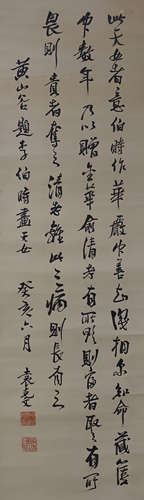 此天女者意伯時作華嚴中善知識相尔知命藏
中數年乃以贈金華俞清老有所則富者取之有所
畏則貴者奪之清老離此二病則長有之
黃山谷題李伯時畫天女
癸亥六月 袁